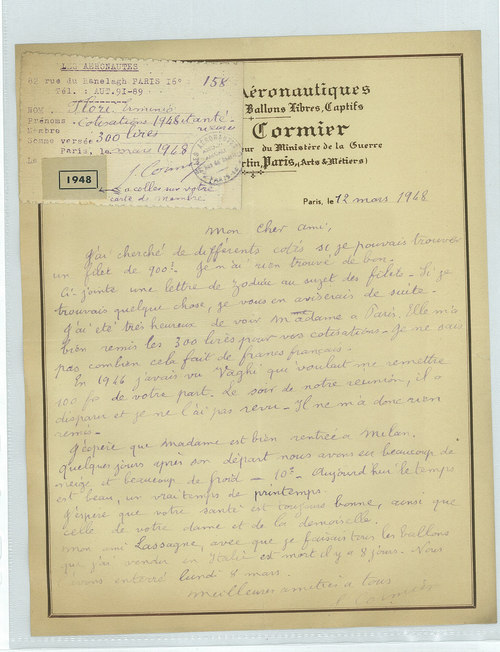 LES AERONAUTES
82 rue du Ranelagh PARIS 16°
Tél. : AUT.91-89
158
NOM. Flori
Prénoms
Cotisations 1948 et anté-
rieures
Membre
Somme versée 300 lires
Paris, le mars 1948
La
J. Cormier
1948
à coller sur votre
carte de membre
Aéronautiques
Ballons Libres, Captifs
Cormier
eur du Ministère de la Guerre
rtin, Paris, (Arts & Métiers)
Paris, le 12 mars 1948
Mon cher ami,
J'ai cherché de différents cotés si je pouvais trouver
un filet de 900 . Je n'ai rien trouvé de bon.
Ci-jointe une lettre de Zodiac au sujet des filets - Si je
trouvais quelque chose, je vous en aviserais de suite -
J'ai été très heureux de voir Madame à Paris. Elle m'a
bien remis les 300 lires pour vos cotisations - Je ne sais
pas combien cela fait de francs français -
En 1946 j'avais vu Vaghi qui voulait me remettre
100 frs de votre part. Le soir de notre réunion, il a
disparu et je ne l'ai pas revu - Il ne m'a donc rien
remis -
J'espère que Madame est bien rentrée à Milan.
Quelques jours après son départ nous avons eu beaucoup de
neige et beaucoup de froid - 10° - Aujourd'hui le temps
est beau, un vrai temps de printemps.
J'espère que votre santé est toujours bonne, ainsi que
celle de votre dame et de la demoiselle.
Mon ami Lassagne, avec que je faisais tous les ballons
que j'ai vendu en Italie est mort il y a 8 jours. Nous
l'avons enterré lundi 8 mars.
Meilleures amitiés à tous
Cormier